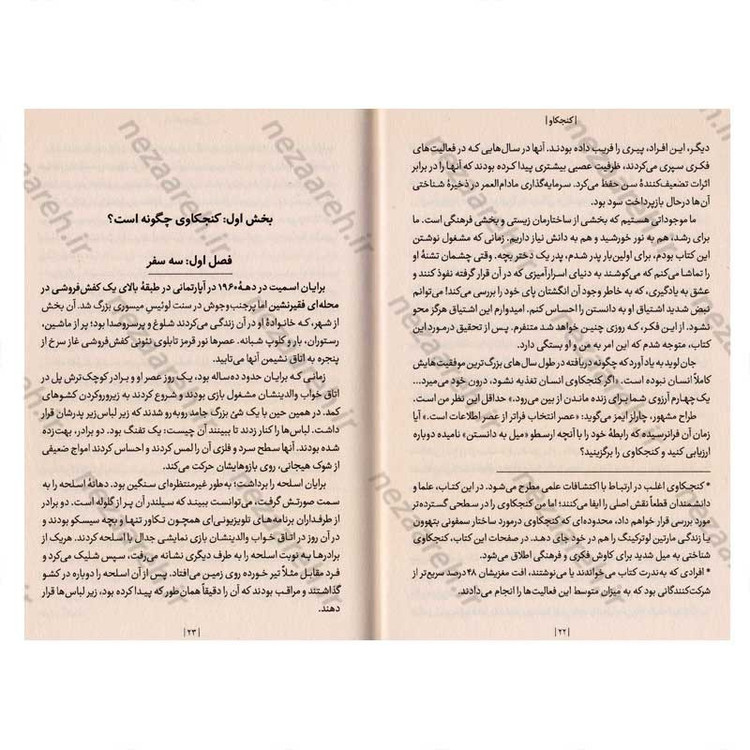 | کنجکاو |
دیگر، این افراد، پیری را فریب داده بودند. آنها در سال‌هایی که در فعالیت‌های
فکری سپری می‌کردند، ظرفیت عصبی بیشتری پیدا کرده بودند که آنها را در برابر
اثرات تضعیف‌کنندهٔ سن حفظ می‌کرد. سرمایه‌گذاری مادام‌العمر در ذخیرهٔ شناختی
آن‌ها درحال بازپرداخت سود بود.
ما موجوداتی هستیم که بخشی از ساختارمان زیستی و بخشی فرهنگی است. ما
برای رشد، هم به نور خورشید و هم به دانش نیاز داریم. زمانی که مشغول نوشتن
این کتاب بودم، برای اولین‌بار پدر شدم، پدر یک دختر بچه. وقتی چشمان تشنهٔ او
را تماشا می‌کنم که می‌کوشند به دنیای اسرارآمیزی که در آن قرار گرفته نفوذ کنند و
عشق به یادگیری، که به خاطر وجود آن انگشتان پای خود را بررسی می‌کند، می‌توانم
نبض شدید اشتیاق او به دانستن را احساس کنم. امیدوارم این اشتیاق هرگز محو
نشود. از این فکر، که روزی چنین خواهد شد متنفرم. پس از تحقیق درمورد این
کتاب، متوجه شدم که این امر به من و او بستگی دارد.
جان لوید به یاد آورد که چگونه دریافته در طول سال های بزرگ‌ترین موفقیت‌هایش
کاملاً انسان نبوده است. «اگر کنجکاوی انسان تغذیه نشود، درون خود می‌میرد...
یک‌چهارم آرزوی شما برای زنده ماندن از بین می‌رود.» حداقل این نظر من است.
طراح مشهور، چارلز ایمز می‌گوید: «عصر انتخاب فراتر از عصر اطلاعات است.» آیا
زمان آن فرانرسیده که رابطهٔ خود را با آنچه ارسطو «میل به دانستن» نامیده دوباره
ارزیابی کنید و کنجکاوی را برگزینید؟
* کنجکاوی اغلب در ارتباط با اکتشافات علمی مطرح می‌شود. در این کتاب، علما و
دانشمندان قطعاً نقش اصلی را ایفا می‌کنند؛ اما من کنجکاوی را در سطحی گسترده‌تر
مورد بررسی قرار خواهم داد، محدوده‌ای که کنجکاوی درمورد ساختار سمفونی بتهوون
یا زندگی مارتین لوترکینگ را هم در خود جای دهد. در صفحات این کتاب، کنجکاوی
شناختی به میل شدید برای کاوش فکری و فرهنگی اطلاق می‌شود.
* افرادی که به‌ندرت کتاب می‌خواندند یا می‌نوشتند، افت مغزیشان ۴۸درصد سریع‌تر از
شرکت‌کنندگانی بود که به میزان متوسط این فعالیت‌ها را انجام می‌دادند.
| ۲۲ |
بخش اول: کنجکاوی چگونه است؟
فصل اول: سه سفر
برایان اسمیت در دههٔ ۱۹۶۰ در آپارتمانی در طبقهٔ بالای یک کفش‌فروشی در
محله‌ای فقیرنشین اما پرجنب‌وجوش در سنت لوئیس میسوری بزرگ شد. آن بخش
از شهر، که خانوادهٔ او در آن زندگی می‌کردند شلوغ و پرسروصدا بود؛ پر از ماشین،
رستوران، بار و کلوپ شبانه. عصرها نور قرمز تابلوی نئونی کفش‌فروشی غاز سرخ از
پنجره به اتاق نشیمن آنها می‌تابید.
زمانی که برایان حدود ده‌ساله بود، یک روز عصر او و برادر کوچک‌ترش پل در
اتاق خواب والدینشان مشغول بازی بودند و شروع کردند به زیروروکردن کشوهای
کمد. در همین حین با یک شئ بزرگ جامد روبه‌رو شدند که زیر لباس‌زیر پدرشان قرار
داشت. لباس‌ها را کنار زدند تا ببینند آن چیست: یک تفنگ بود. دو برادر، بهت‌زده
شده بودند. آنها سطح سرد و فلزی آن را لمس کردند و احساس کردند امواج ضعیفی
از شوک هیجانی، روی بازوهایشان حرکت می‌کند.
برایان اسلحه را برداشت؛ به‌طور غیرمنتظره‌ای سنگین بود. دهانهٔ اسلحه را به
سمت صورتش گرفت، می‌توانست ببیند که سیلندر آن پر از گلوله است. دو برادر
از طرفداران برنامه‌های تلویزیونی‌ای همچون تکاور تنها و بچه سیسکو بودند و
در آن روز در اتاق خواب والدینشان بازی نمایشی جدال با اسلحه کردند. هریک از
برادرها به نوبت اسلحه را به طرف دیگری نشانه می‌رفت، سپس شلیک می‌کرد و
فرد مقابل مثلاً تیر خورده روی زمین می‌افتاد. پس از آن اسلحه را دوباره در کشو
گذاشتند و مراقب بودند که آن را دقیقاً همان‌طور که پیدا کرده بود، زیر لباس‌ها قرار
دهند.
| ۲۳ |
nezaareh.ir
nezaareh.ir
nezaareh.ir
nezaareh.ir
nezaareh.ir
nezaareh.ir